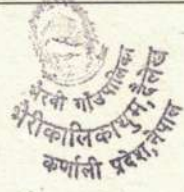 भैरवी गाउँपालिका
भैरीकालिकाथुम, दैलेख
कर्णाली प्रदेश, नेपाल